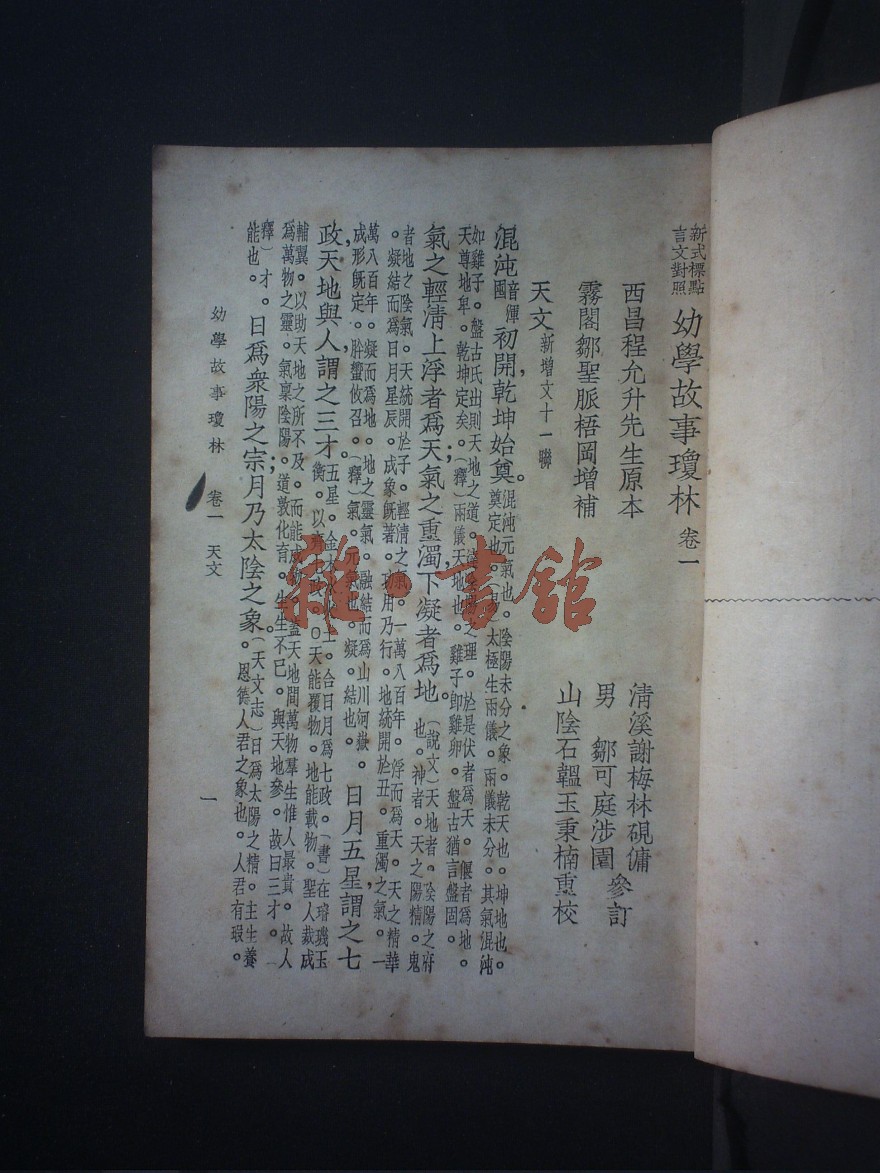 新式標點
言文對照
幼學故事瓊林 卷一
西昌程允升先生原本
清溪謝梅林硯傭
霧閣鄒聖脈梧岡增補
男 鄒可庭涉園 參訂
山陰石韞玉秉楠重校
天文 新增文十一聯
混沌 音渾囤 初開乾坤始奠。
混沌元氣也。陰陽未分之象。乾天也。坤地也。
奠定也。太極生兩儀。兩儀未分。其氣混沌
如雞子。盤古氏出則天地之道。之理。於是伏者為天。偃者為地。
天尊地卑。乾坤定矣。(釋)兩儀天地也。雞子即雞卵。盤古猶言盤固。
氣之輕清上浮者爲天;氣之重濁,下凝者爲地。
(說文)天地者。陰陽之府
也。神者。天之陽精。鬼
者地之陰氣。天統開於子。輕清之氣。一萬八百年。浮而爲天。天之精華
。凝結而爲日月星辰。成象旣著。功用乃行。地統開於丑。重濁之氣。一
萬八百年。凝而爲地。地之靈氣。融結而爲山川河嶽。
成形旣定。肸蠁攸召。(釋)氣。元氣也。凝。結也。
日月五星,謂之七
政,天地與人,謂之三才;
五星。金木土。合日月爲七政。(書)在璿璣玉
衡。以齊七政。○天能覆物。地能載物。聖人裁成
輔翼。以助天地之所不及。而能成蓋天地間萬物羣生惟人最貴。故人
爲萬物之靈。氣稟陰陽。道敦化育。生生不已。與天地參。故曰三才。
(釋)才。
能也。
日爲衆陽之宗,月乃太陰之象。
(天文志)日爲太陽之精。主生養
。恩德人君之象也。人君有瑕。
幼學故事瓊林 卷一 天文
一
雜·書館